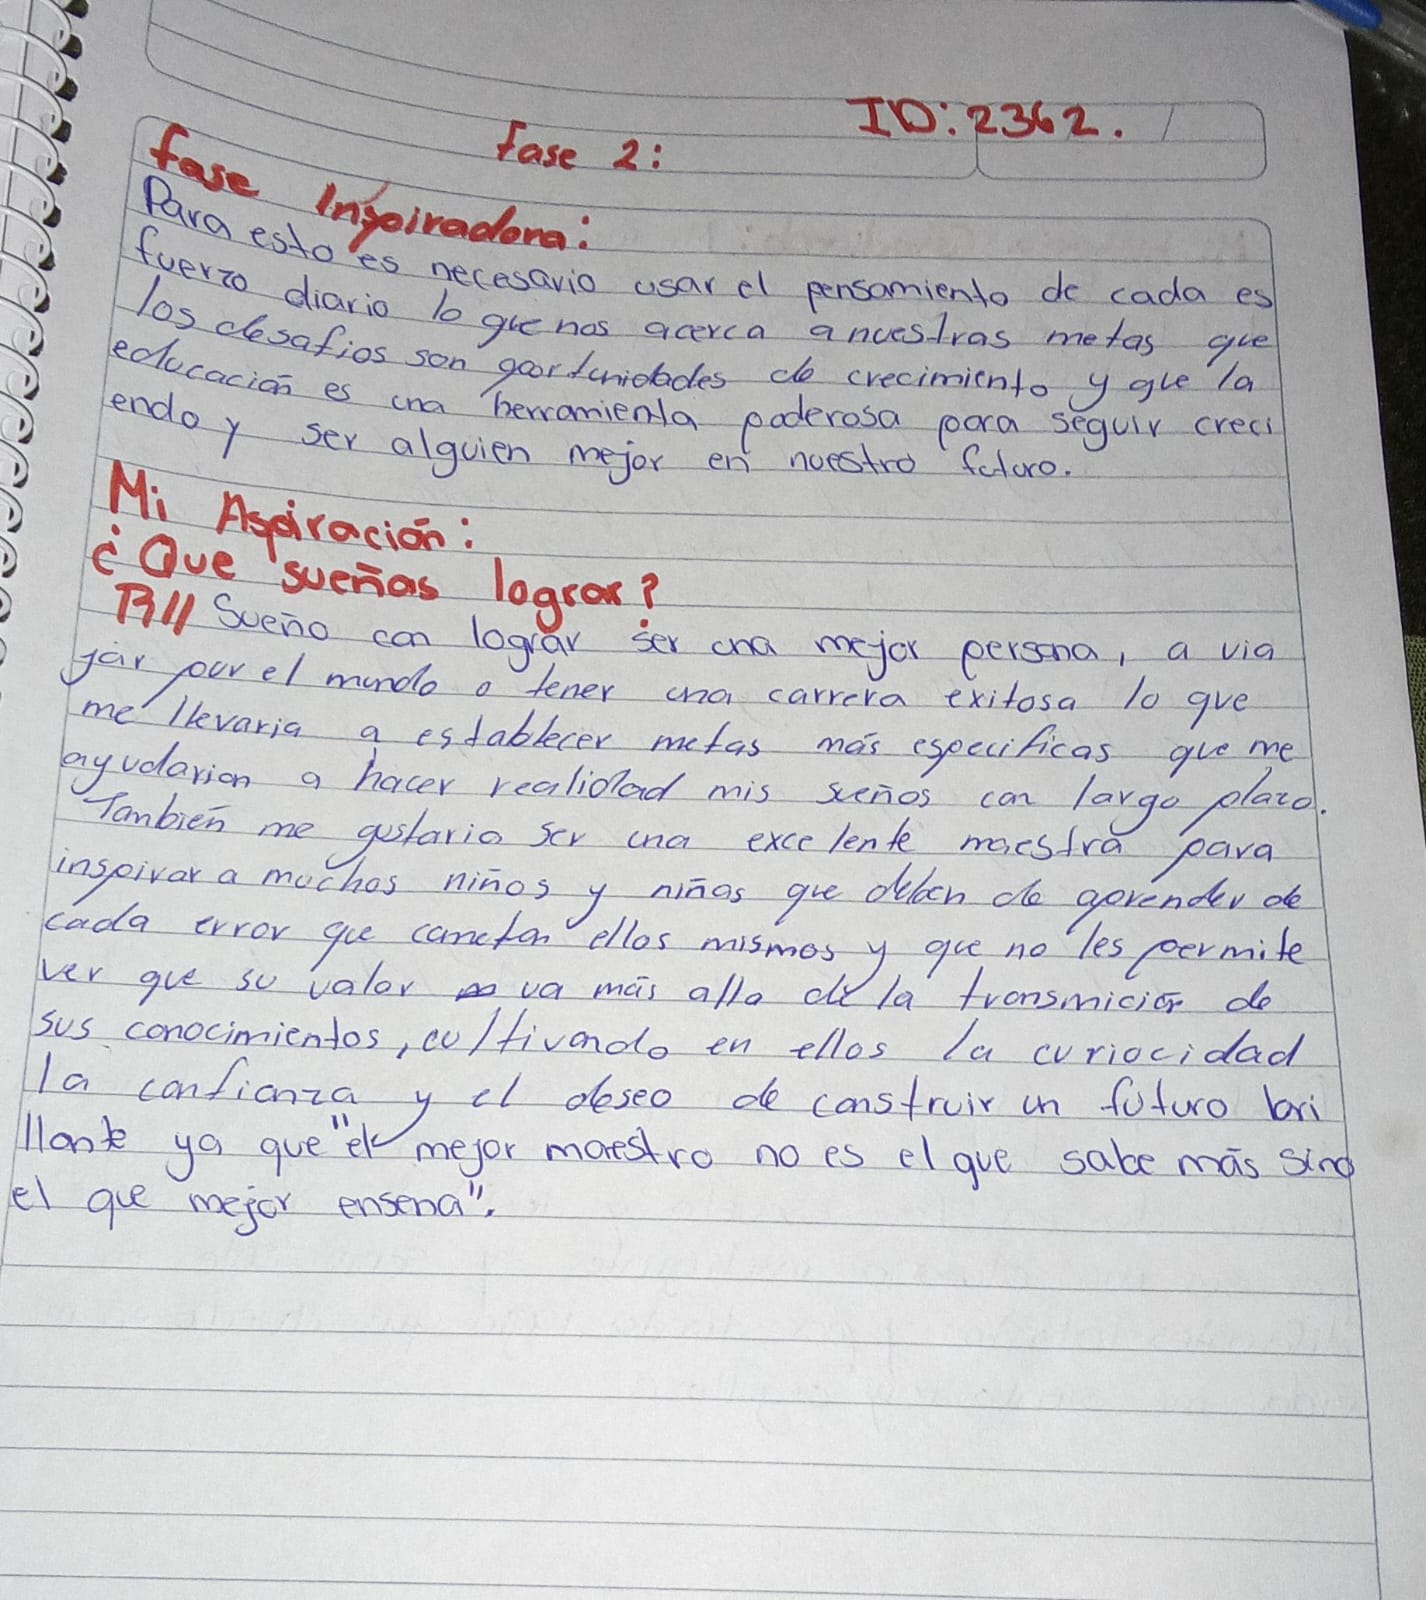 ID: 2362.
Fase 2:
Fase Inspiradora:
Para esto es necesario usar el pensamiento de cada es
fuerzo diario lo que nos acerca a nuestras metas que
los desafios son oportunidades de crecimiento y que la
educación es una herramienta poderosa para seguir creci
endo y ser alguien mejor en nuestro futuro.
Mi Aspiración:
¿Que sueñas lograr?
R// Sueño con lograr ser una mejor persona, a via
jar por el mundo o tener una carrera exitosa lo que
me llevaria a establecer metas más especificas que me
ayudarian a hacer realidad mis sueños con largo plazo.
Tanbién me gustaria ser una excelente maestra para
inspirar a muchos niños y niñas que deben de aprender de
cada error que cometan ellos mismos y que no les permite
ver que su valor va más alla de la transmición de
sus conocimientos, cultivando en ellos la curiocidad
la confianza y el deseo de construir un futuro bri
llante ya que "el mejor maestro no es el que sabe más sino
el que mejor ensena".